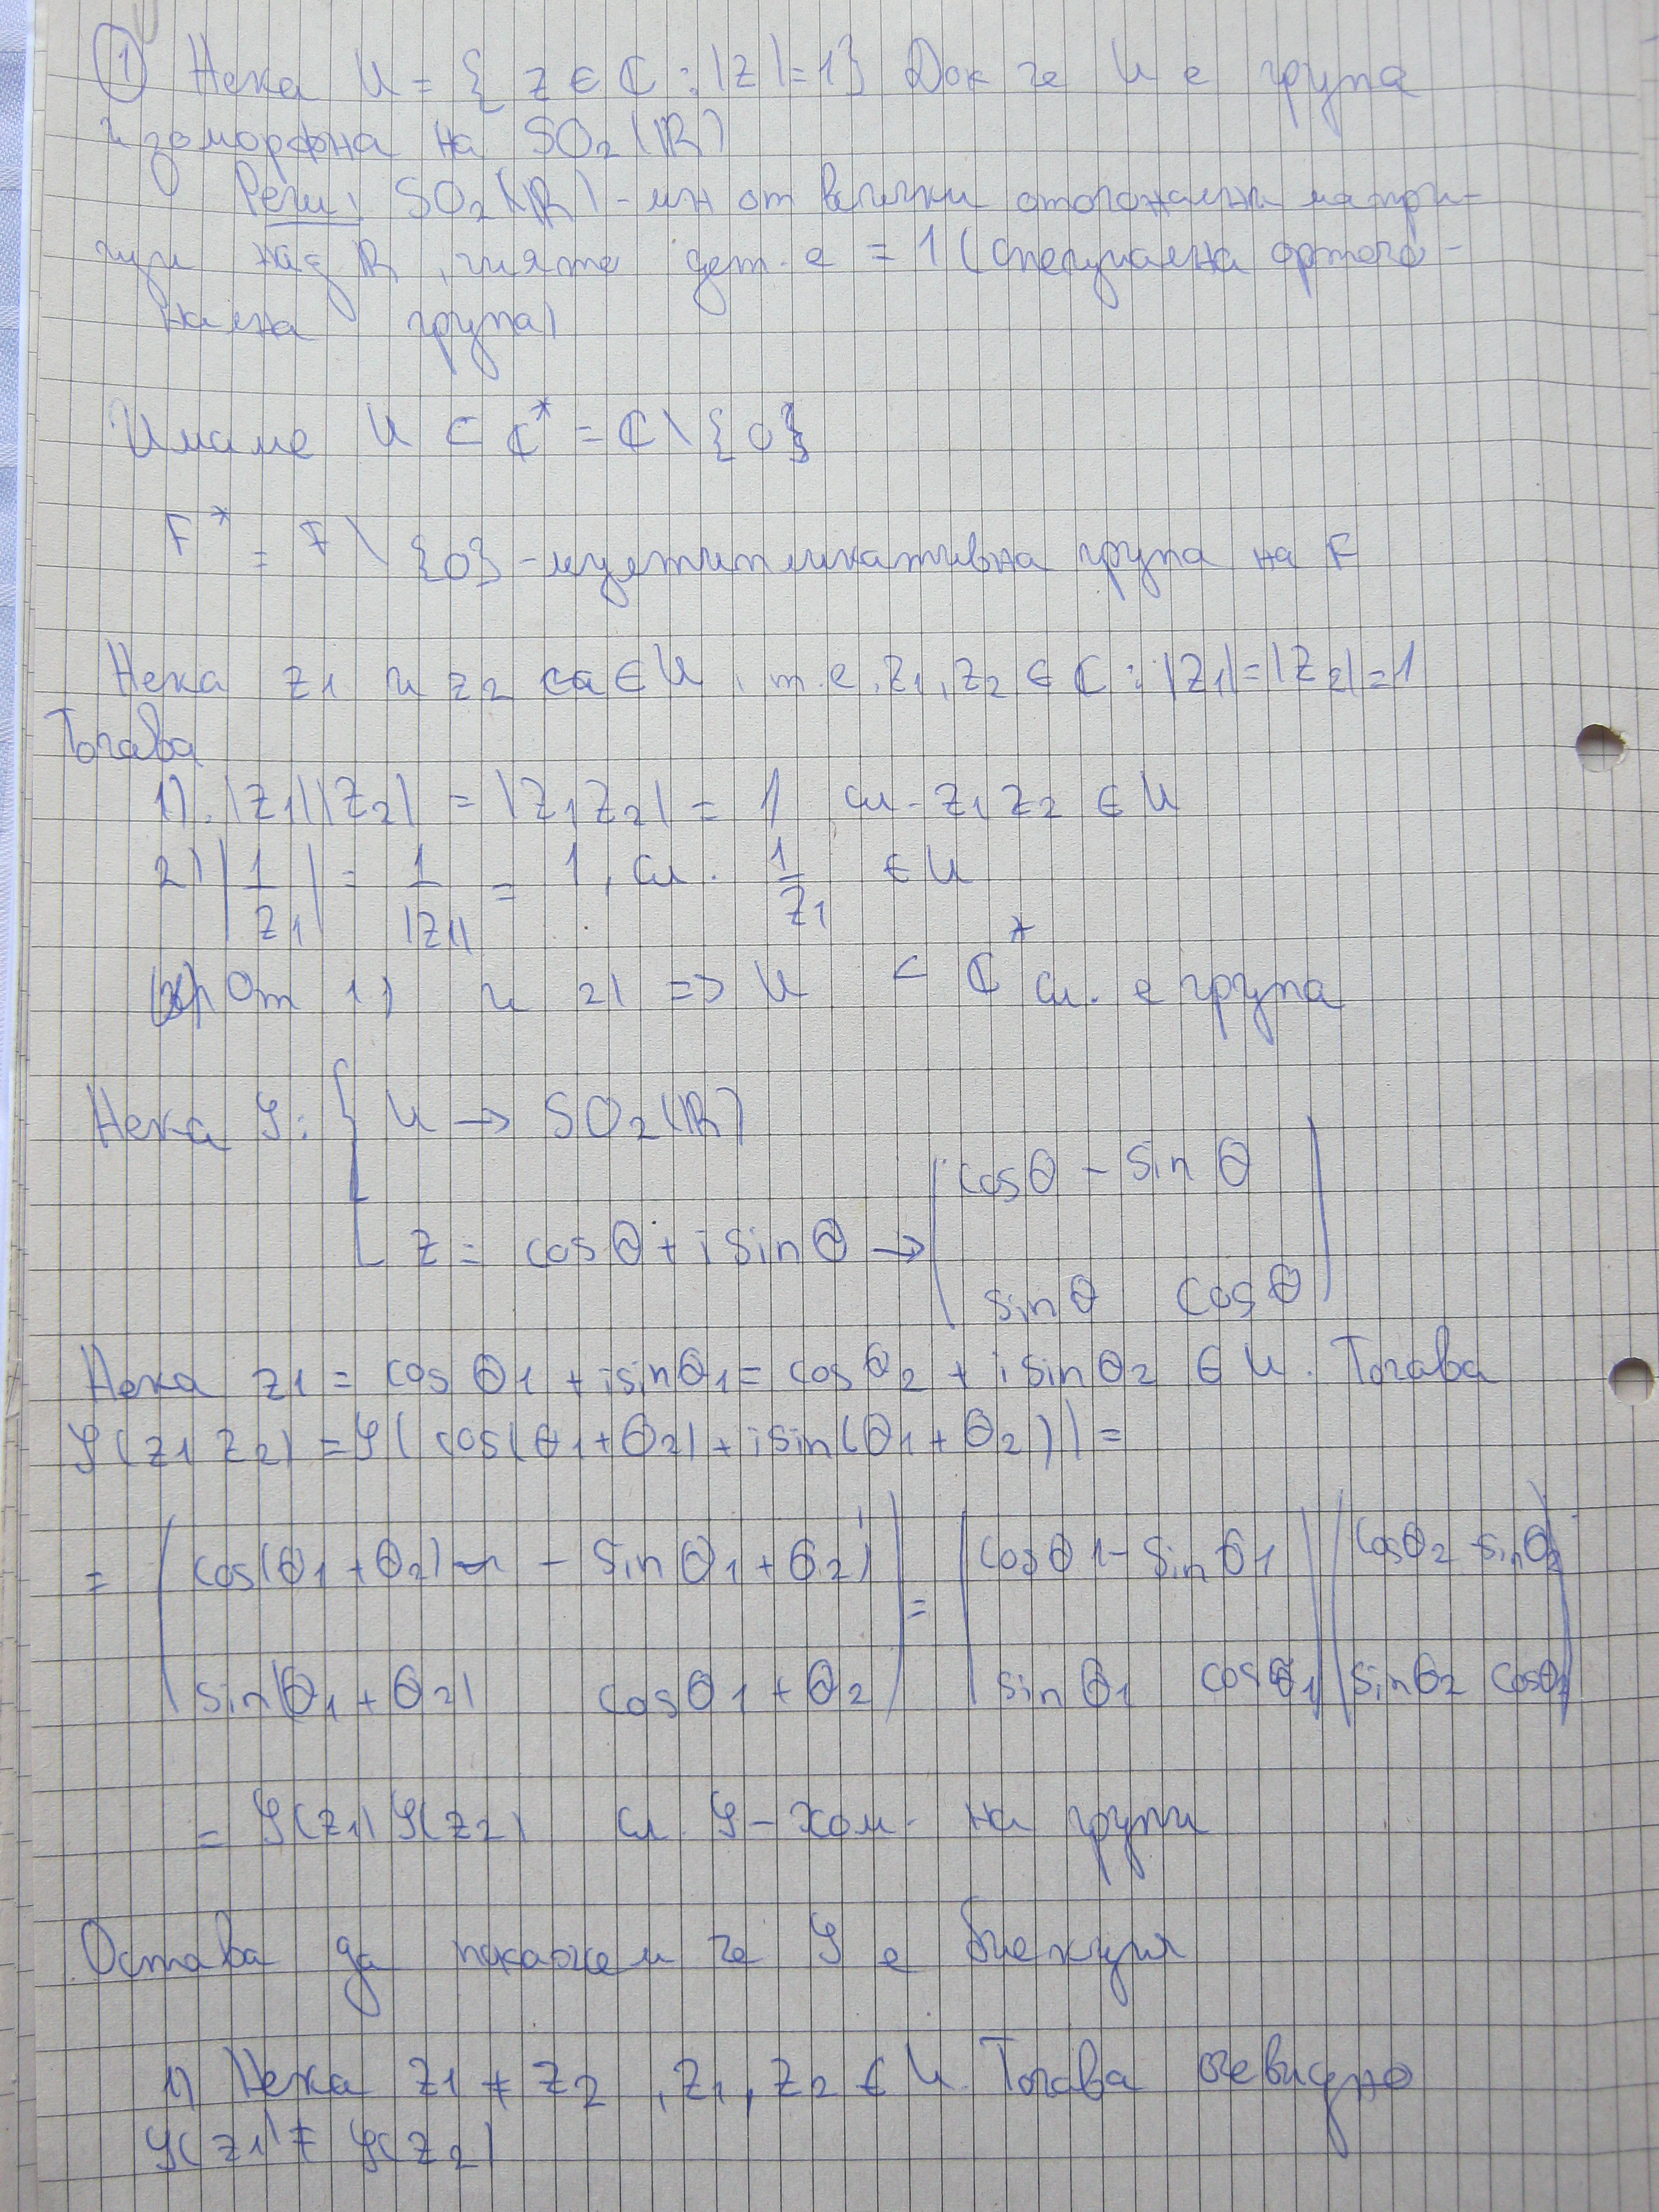 ① Нека U = { z ∈ ℂ : |z| = 1} Док че U е група
изоморфна на SO₂(ℝ)
Реш: SO₂(ℝ) - мн от всички ортогонални матри-
ци над ℝ, чиято дет. е = 1 (специална ортого-
нална група)
Имаме U ⊂ ℂ* = ℂ \ {0}
F* = F \ {0} - мултипликативна група на F
Нека z₁ и z₂ са ∈ U, т.е. z₁, z₂ ∈ ℂ : |z₁| = |z₂| = 1
Тогава
1). |z₁||z₂| = |z₁z₂| = 1 сл. z₁z₂ ∈ U
2) |1/z₁| = 1/|z₁| = 1, сл. 1/z₁ ∈ U
От 1) и 2) => U < ℂ* сл. е група
Нека φ: { U → SO₂(ℝ)
z = cosθ + i sinθ → ( cosθ - sinθ
sinθ cosθ )
Нека z₁ = cosθ₁ + i sinθ₁ = cosθ₂ + i sinθ₂ ∈ U. Тогава
φ(z₁z₂) = φ(cos(θ₁+θ₂) + i sin(θ₁+θ₂)) =
= ( cos(θ₁+θ₂) - sinθ₁+θ₂) ) = ( cosθ₁ - sinθ₁ ) ( cosθ₂ - sinθ₂ )
( sin(θ₁+θ₂) cosθ₁+θ₂ ) ( sinθ₁ cosθ₁ ) ( sinθ₂ cosθ₂ )
= φ(z₁)φ(z₂) сл. φ - хом. на групи
Остава да покажем че φ е биекция
1) Нека z₁ ≠ z₂, z₁, z₂ ∈ U. Тогава очевидно
φ(z₁) ≠ φ(z₂)